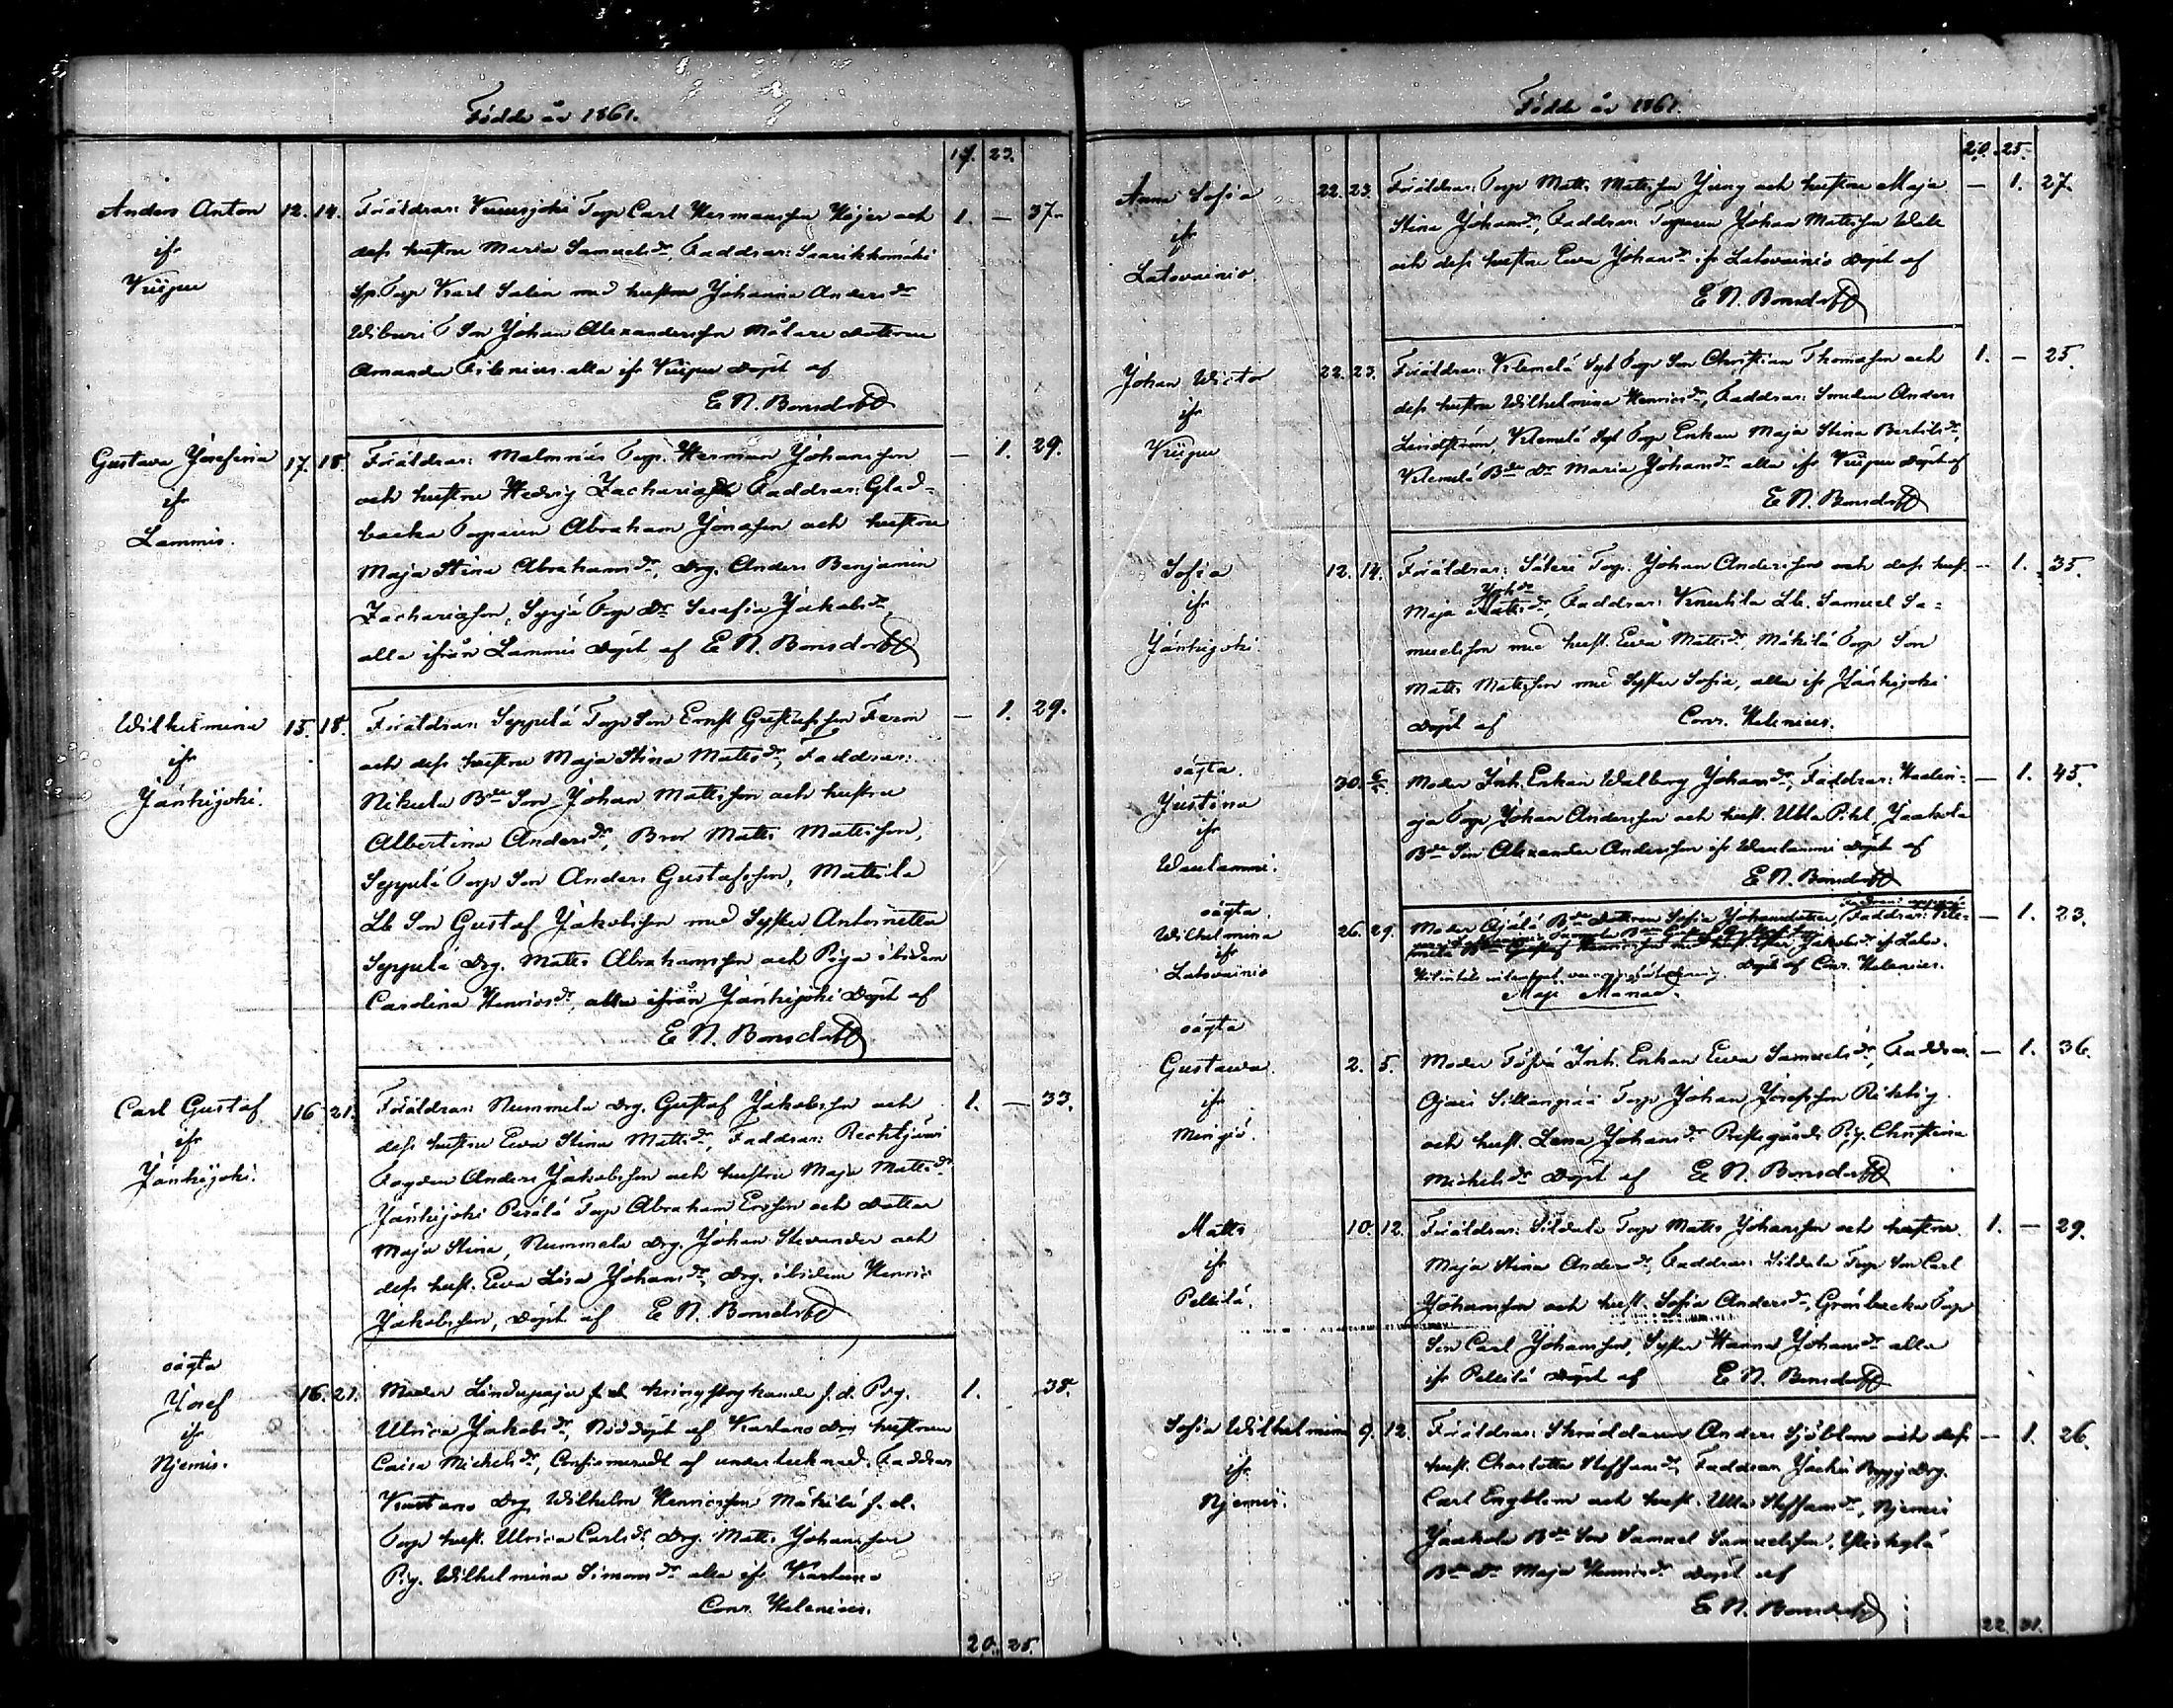 Födde år 1861.
17. 23.
Anders Anton 12. 14. Föräldrar: Torp Carl Hermansson Höjer och 1. — 37.
ifr dess hustru Maria Samuelsdr Faddrar: Saarikkomäki
Viipu Sp. Torp Karl Salin med hustru Johanna Andersdr
Son Johan Alexandersson Målare dottren
Amanda alla ifr Viipu Döpt af
E N. Bonsdorff
Gustava Josefina 17. 18. Föräldrar: Malmnäs Torp. Herman Johansson — 1. 29.
ifr och hustru Hedvig Zachariasdr Faddrar: Glad-
Lammis. backa Torparen Abraham Jonasson och hustru
Maja Stina Abrahamsdr, Drg. Anders Benjamin
Zachariasson, Syrjä Torp Dr Serafia Jakobsdr,
alla ifrån Lammis Döpt af E N. Bonsdorff
Wilhelmina 15. 18. Föräldrar: Seppälä Torp Son Ernst Gustafsson Ferm — 1. 29.
ifr och dess hustru Maja Stina Mattsdr, Faddrar:
Jänhijoki. Nikula Bde Son Johan Mattsson och hustru
Albertina Andersdr, Bror Matts Mattsson,
Seppälä Torp Son Anders Gustafsson, Mattila
Lb Son Gustaf Jakobsson med Syster Antoinetta
Seppälä Drg. Matts Abrahamsson och Piga ibidem
Carolina Henricsdr, alla ifrån Jänhijoki Döpt af
E N. Bonsdorff
Carl Gustaf 16. 21. Föräldrar: Nummela Drg. Gustaf Jakobsson och 1. — 33.
ifr dess hustru Ewa Stina Mattsdr, Faddrar: Rechtjärvi
Jänhijoki. Fogden Anders Jakobsson och hustru Maja Mattsdr
Jänhijoki Perälä Torp Abraham Ersson och Dotter
Maja Stina, Nummela Drg. Johan Stevander och
dess hust. Ewa Lisa Johansdr, Drg. ibidem Henric
Jakobsson, Döpt af E N. Bonsdorff
oägta
Josef 16. 21. Moder Lindupaja f. d. kringstrykande f. d. Pig. 1. 38.
ifr Ulrica Jakobsdr, Nöddöpt af Kartano Drg hustrun
Njemis. Caisa Michelsdr, Confirmeradt af undertecknad. Faddrar
Kartano Drg Wilhelm Henricsson Mäkilä f. d.
Torp hust. Ulrica Carlsdr, Drg. Matts Johansson
Pig. Wilhelmina Simonsdr alla ifr Kartano
Conr. Helenius.
20. 25.
Födde år 1861.
20. 25.
Anna Sofia 22. 23. Föräldrar: Torp Matts Mattsson Ljung och hustru Maja — 1. 27.
ifr Stina Johansdr, Faddrar: Torparen Johan Mattsson Wall
Latovainio. och dess hustru Ewa Johansdr ifr Latovainio Döpt af
E N. Bonsdorff
Johan Wictor 22. 23. Föräldrar: Syt Torp Son Christian Thomasson och 1. — 25.
ifr dess hustru Wilhelmina Henricsdr, Faddrar: Smeden Anders
Viipu Lindström, Syt Torp Enkan Maja Stina Bertilsdr,
Bde Dr Maria Johansdr alla ifr Viipu Döpt af
E N. Bonsdorff
Sofia 12. 14. Föräldrar: Säteri Torp. Johan Andersson och dess hust. — 1. 35.
ifr Maja Johsdr Mattsdr Faddrar: Knuutila Lb. Samuel Sa-
Jänhijoki. muelsson med hust. Ewa Mattsdr, Mäkilä Torp Son
Matts Mattsson med Syster Sofia, alla ifr Jänhijoki
Döpt af Conr. Helenius.
oägta.
Justina 30. Moder Inh. Enkan Walborg Johansdr, Faddrar: — 1. 45.
ifr Torp Johan Andersson och hust. Ulla Pihl, Jaakola
Waulammi. Bde Son Alexander Andersson ifr Waulammi Döpt af
E N. Bonsdorff
oägta.
Wilhelmina 26. 29. Moder Ojälä Bde Dottren Sofia Johansdotter, Faddrar: — 1. 23.
ifr
Latovainio Döpt af Conr. Helenius.
Maji Månad.
oägta
Gustawa 2. 5. Moder Inh. Enkan Ewa Samuelsdr, Faddrar — 1. 36.
ifr Ojais Sillanpää Torp Johan Josefsson
och hust. Lena Johansdr Prestgårds Pig. Christina
Michelsdr Döpt af E N. Bonsdorff
Matts 10. 12. Föräldrar: Sildala Torp Matts Johansson och hustru 1. — 29.
ifr Maja Stina Andersdr, Faddrar: Sildala Torp Son Carl
Pellilä. Johansson och hust. Sofia Andersdr, Grönbacka Torp
Son Carl Johansson, Syster Hanna Johansdr alla
ifr Pellilä Döpt af E N. Bonsdorff
Sofia Wilhelmina 9. 12. Föräldrar: Skräddaren Anders Sjöblom och dess — 1. 26.
ifr hust. Charlotta Steffansdr, Faddrar: Drg.
Njemis. Carl Engblom och hust. Ulla Steffansdr, Njemis
Jaakola Bde Son Samuel Samuelsson, Yliskylä
Bde Dr Maja Henricsdr Döpt af
E N. Bonsdorff
22. 31.